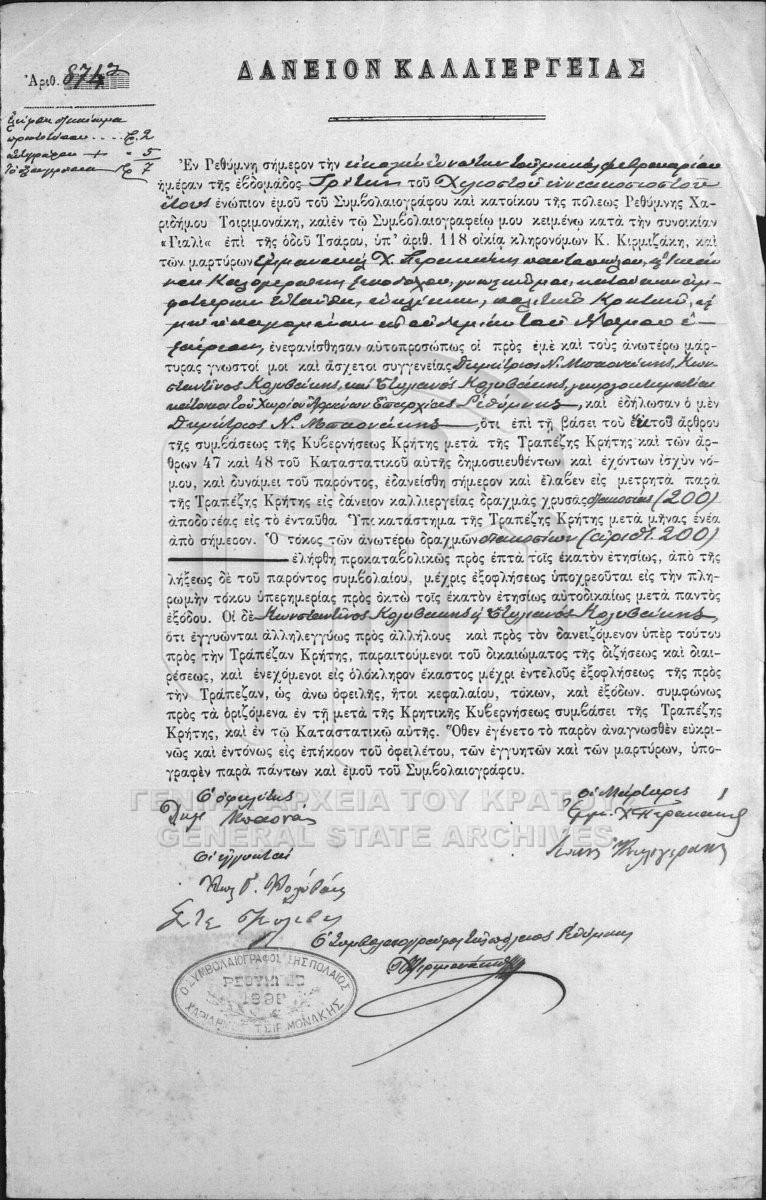 ΔΑΝΕΙΟΝ ΚΑΛΛΙΕΡΓΕΙΑΣ
Ἀριθ. 8743
δρ. 2
5
δρ 7
Ἐν Ρεθύμνῃ σήμερον τὴν εἰκοστὴν ἐννάτην τοῦ μηνὸς Φεβρουαρίου
ἡμέραν τῆς ἑβδομάδος Τρίτην τοῦ Χιλιοστοῦ ἐννεακοσιοστοῦ
ἔτους ἐνώπιον ἐμοῦ τοῦ Συμβολαιογράφου καὶ κατοίκου τῆς πόλεως Ρεθύμνης Χα-
ριδήμου Τσιριμονάκη, καὶ ἐν τῷ Συμβολαιογραφείῳ μου κειμένῳ κατὰ τὴν συνοικίαν
«Γιαλὶ» ἐπὶ τῆς ὁδοῦ Τσάρου, ὑπ' ἀριθ. 118 οἰκίᾳ κληρονόμων Κ. Κιρμιζάκη, καὶ
τῶν μαρτύρων Ἐμμανουὴλ Χ. Περακάκη παντοπώλου,
Καλογεράκη ξενοδόχου,
φοτέρων ἐνταῦθα, ἐνηλίκων, πολιτῶν Κρητῶν,
μὴ ὑπαγομένων εἰς οὐδεμίαν τοῦ Νόμου ἐ-
ξαίρεσιν, ἐνεφανίσθησαν αὐτοπροσώπως οἱ πρὸς ἐμὲ καὶ τοὺς ἀνωτέρω μάρ-
τυρας γνωστοί μοι καὶ ἄσχετοι συγγενείας Δημήτριος Ν. Μπαονάκης, Κων-
σταντῖνος Κολυβάκης, καὶ Στυλιανὸς Κολυβάκης, γεωργοκτηματίαι
κάτοικοι τοῦ Χωρίου Ἐπαρχίας Ρεθύμνης, καὶ ἐδήλωσαν ὁ μὲν
Δημήτριος Ν. Μπαονάκης, ὅτι ἐπὶ τῇ βάσει τοῦ ἕκτου ἄρθρου
τῆς συμβάσεως τῆς Κυβερνήσεως Κρήτης μετὰ τῆς Τραπέζης Κρήτης καὶ τῶν ἄρ-
θρων 47 καὶ 48 τοῦ Καταστατικοῦ αὐτῆς δημοσιευθέντων καὶ ἐχόντων ἰσχὺν νό-
μου, καὶ δυνάμει τοῦ παρόντος, ἐδανείσθη σήμερον καὶ ἔλαβεν εἰς μετρητὰ παρὰ
τῆς Τραπέζης Κρήτης εἰς δάνειον καλλιεργείας δραχμὰς χρυσᾶς διακοσίας (200)
ἀποδοτέας εἰς τὸ ἐνταῦθα Ὑποκατάστημα τῆς Τραπέζης Κρήτης μετὰ μῆνας ἐνέα
ἀπὸ σήμερον. Ὁ τόκος τῶν ἀνωτέρω δραχμῶν διακοσίων (ἀριθ. 200)
ἐλήφθη προκαταβολικῶς πρὸς ἑπτὰ τοῖς ἑκατὸν ἐτησίως, ἀπὸ τῆς
λήξεως δὲ τοῦ παρόντος συμβολαίου, μέχρις ἐξοφλήσεως ὑποχρεοῦται εἰς τὴν πλη-
ρωμὴν τόκου ὑπερημερίας πρὸς ὀκτὼ τοῖς ἑκατὸν ἐτησίως αὐτοδικαίως μετὰ παντὸς
ἐξόδου. Οἱ δὲ Κωνσταντῖνος Κολυβάκης ἢ Στυλιανὸς Κολυβάκης,
ὅτι ἐγγυῶνται ἀλληλεγγύως πρὸς ἀλλήλους καὶ πρὸς τὸν δανειζόμενον ὑπὲρ τούτου
πρὸς τὴν Τράπεζαν Κρήτης, παραιτούμενοι τοῦ δικαιώματος τῆς διζήσεως καὶ διαι-
ρέσεως, καὶ ἐνεχόμενοι εἰς ὁλόκληρον ἕκαστος μέχρι ἐντελοῦς ἐξοφλήσεως τῆς πρὸς
τὴν Τράπεζαν, ὡς ἄνω ὀφειλῆς, ἤτοι κεφαλαίου, τόκων, καὶ ἐξόδων. συμφώνως
πρὸς τὰ ὁριζόμενα ἐν τῇ μετὰ τῆς Κρητικῆς Κυβερνήσεως συμβάσει τῆς Τραπέζης
Κρήτης, καὶ ἐν τῷ Καταστατικῷ αὐτῆς. Ὅθεν ἐγένετο τὸ παρὸν ἀναγνωσθὲν εὐκρι-
νῶς καὶ ἐντόνως εἰς ἐπήκοον τοῦ ὀφειλέτου, τῶν ἐγγυητῶν καὶ τῶν μαρτύρων, ὑπο-
γραφὲν παρὰ πάντων καὶ ἐμοῦ τοῦ Συμβολαιογράφου.
Ὁ ὀφειλέτης
Οἱ Μάρτυρες
ΓΕΝΙΚΑ ΑΡΧΕΙΑ ΤΟΥ ΚΡΑΤΟΥΣ
GENERAL STATE ARCHIVES
Οἱ ἐγγυηταὶ
Ὁ Συμβολαιογράφος τῆς πόλεως Ρεθύμνης
Ο ΣΥΜΒΟΛΑΙΟΓΡΑΦΟΣ ΤΗΣ ΠΟΛΕΩΣ
ΡΕΘΥΜΝΗΣ
1898
ΧΑΡΙΔΗΜΟΣ ΤΣΙΡΙΜΟΝΑΚΗΣ